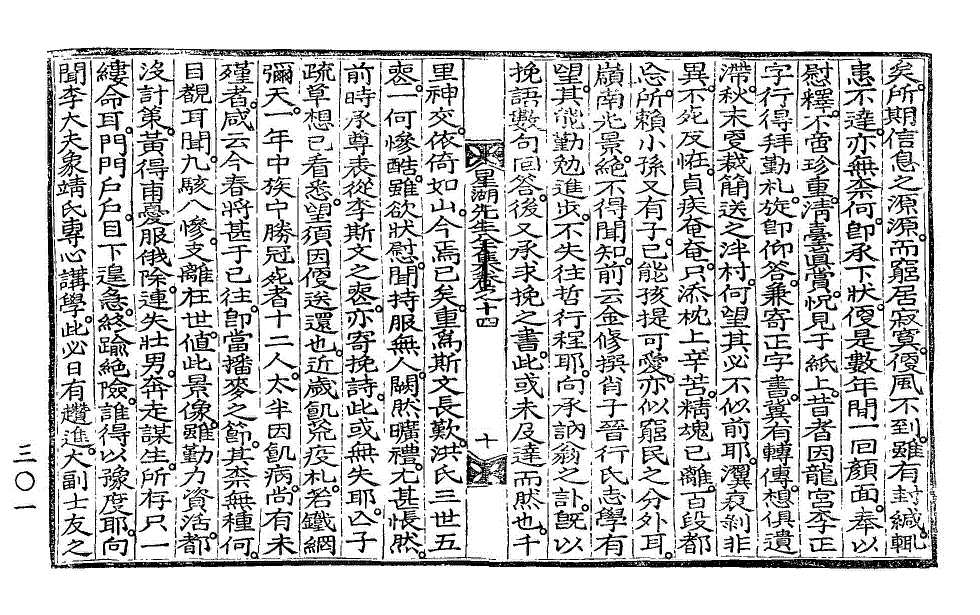 矣所期信息之源源而窮居寂寞便風不到雖有封緘輒
患不達亦無柰何卽承下狀便是數年間一回顏面奉以
慰釋不啻珍重淸臺眞賞怳見子紙上昔者因龍宮李正
字行得拜勤札旋卽仰答兼寄正字書冀有轉傳想俱遺
滯秋末更裁簡送之泮村何望其必不似前耶瀷衰剝非
異不死反恠貞疾奄奄只添枕上辛苦精魂已離百段都
忘所賴小孫又有子已能孩提可愛亦似窮民之分外耳
嶺南光景絶不得聞知前云金修撰肖子晉行氏志學有
望其能勤勉進步不失往哲行程耶向承訥翁之訃旣以
挽語數句回答後又承求挽之書此或未及達而然也千
星湖先生全集卷之十四
十
里神交依倚如山今焉已矣重爲斯文長歎洪氏三世五
喪一何慘酷雖欲狀慰聞持服無人闕然曠禮尤甚悵然
前時承尊表從李斯文之喪亦寄挽詩此或無失耶亾子
疏草想已看悉望須因便送還也近歲飢兇疫札若鐵網
彌天一年中族中勝冠死者十二人太半因飢病尙有未
殣者咸云今春將甚于已往卽當播麥之節其柰無種何
目覩耳聞九駭八慘支離在世値此景像雖勤力資活都
沒計策黃得甫憂服俄除連失壯男奔走謀生所存只一
縷命耳門門戶戶目下遑急終踰絶險誰得以豫度耶向
聞李大夫象靖氏專心講學此必日有趲進大副士友之
三〇一